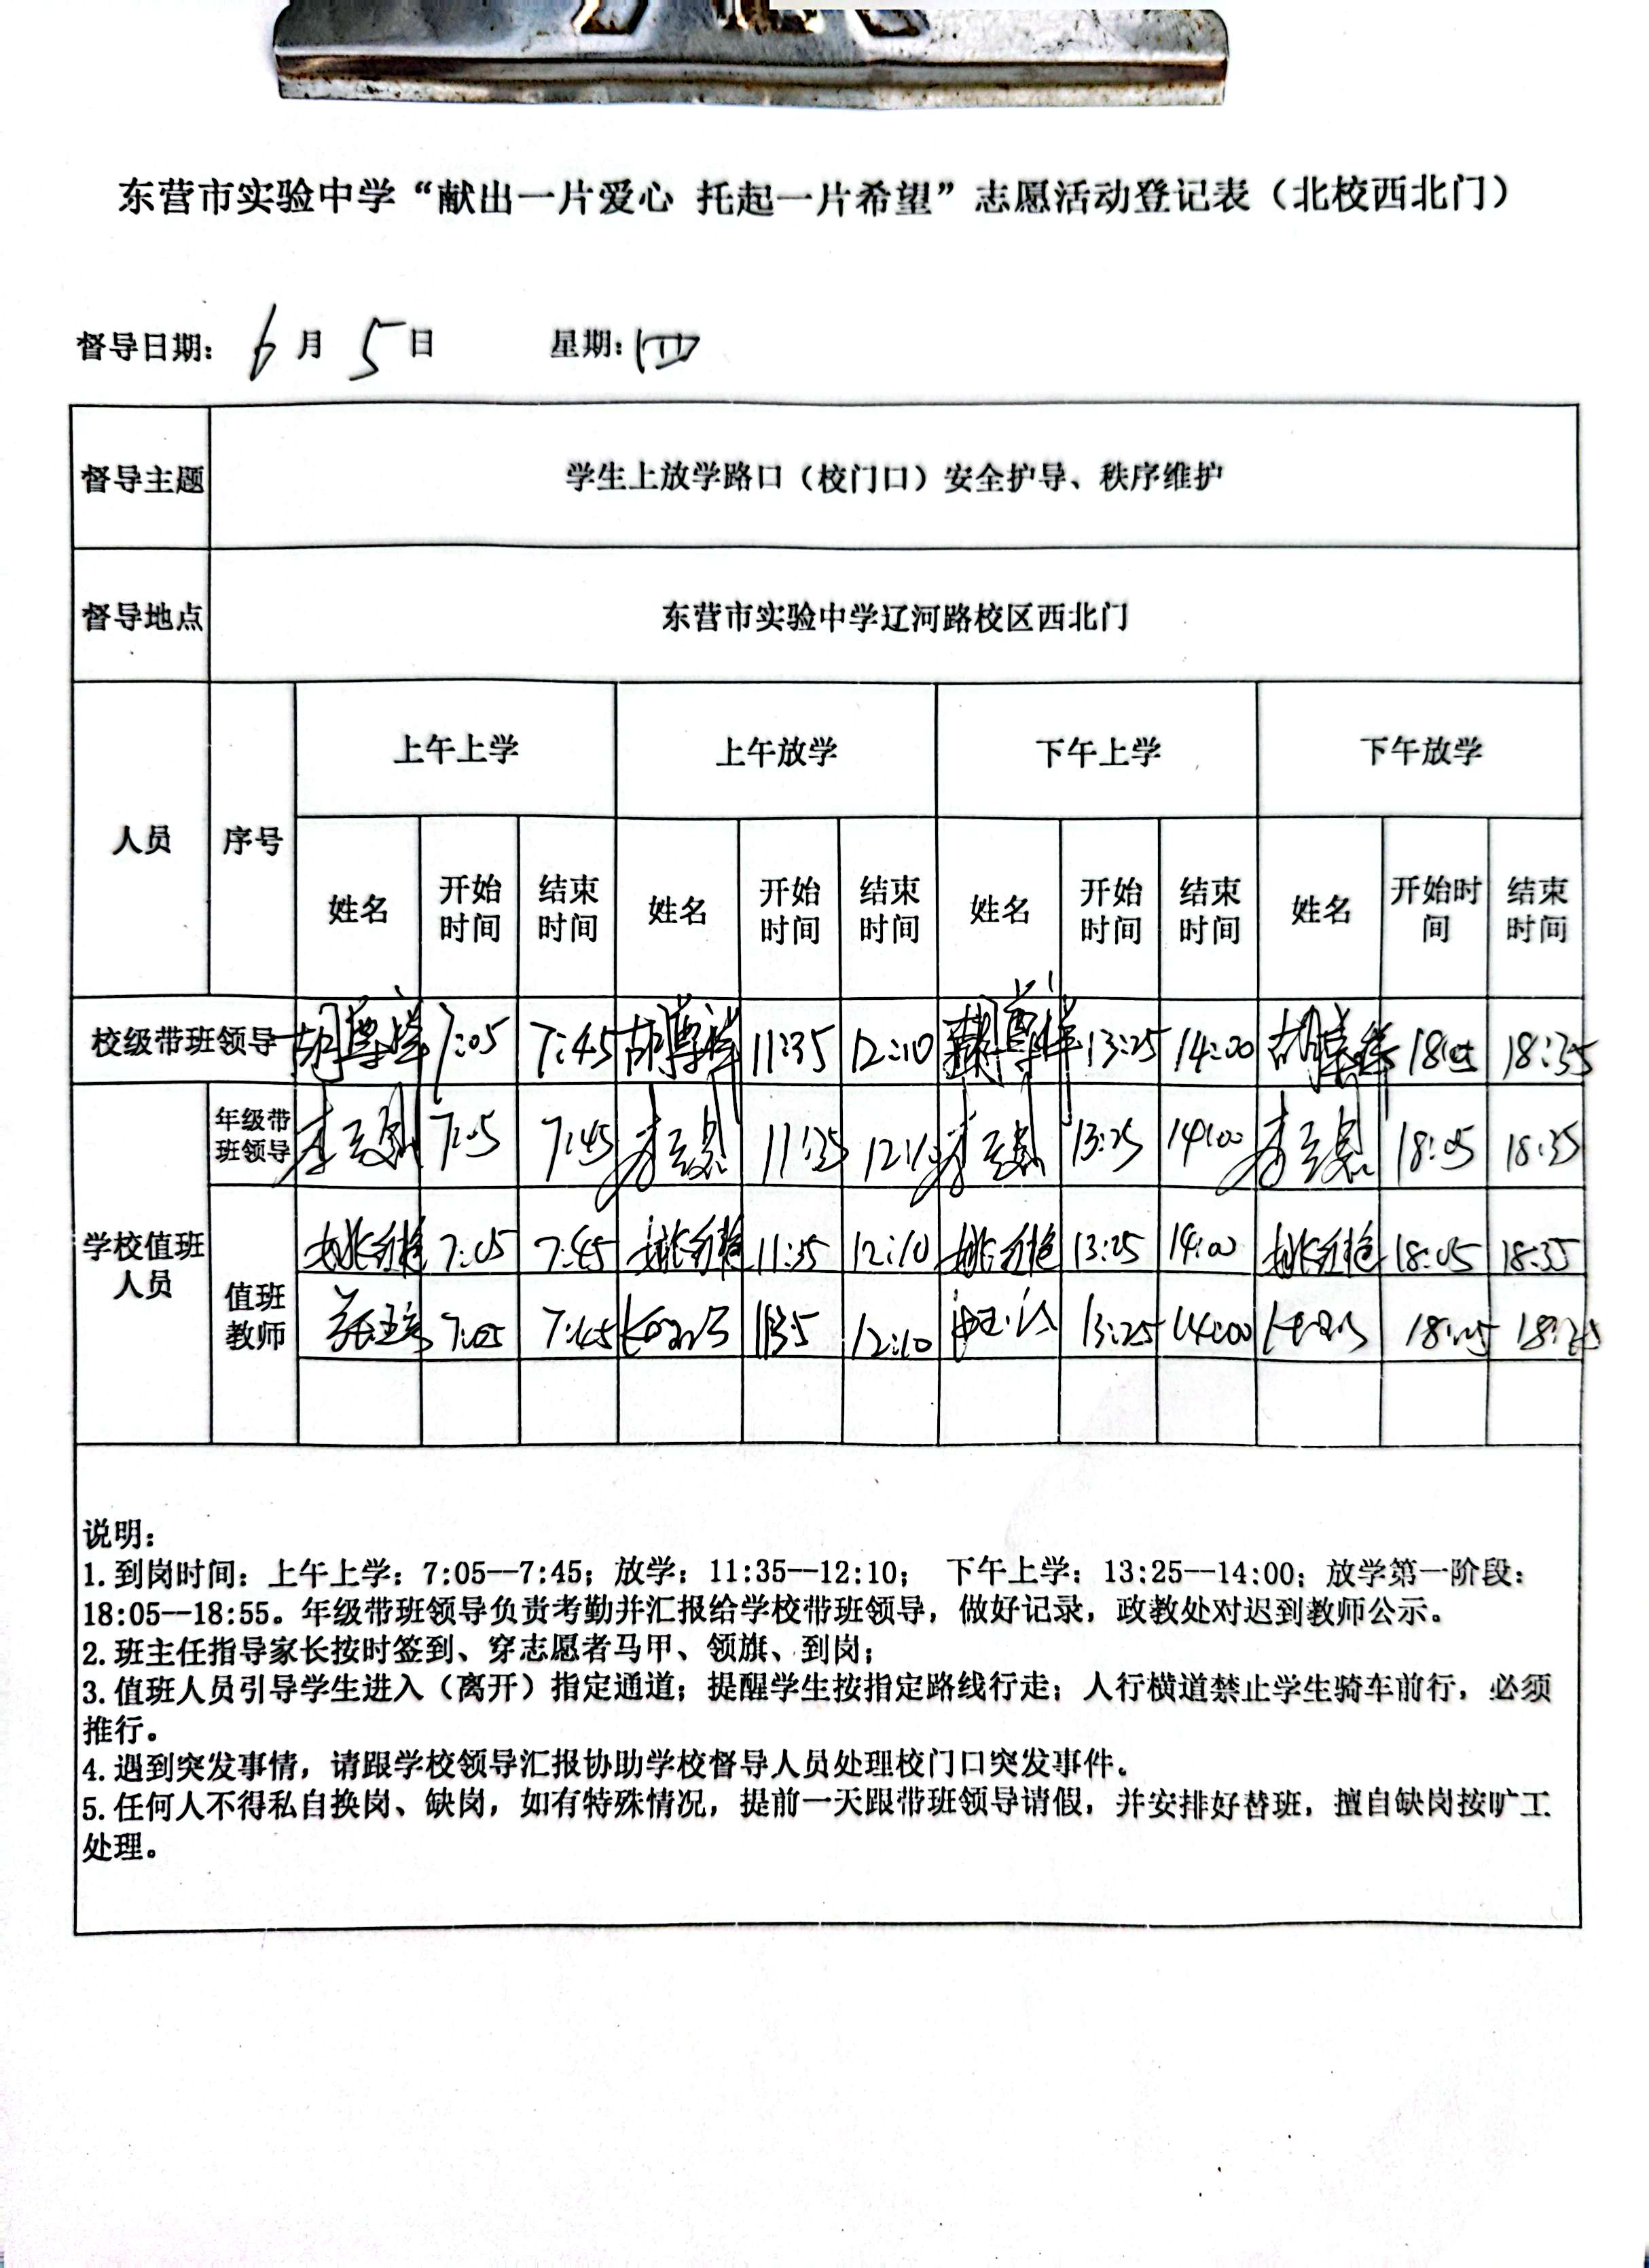 东营市实验中学“献出一片爱心 托起一片希望”志愿活动登记表（北校西北门）
督导日期： 6 月 5 日 星期：四
督导主题 学生上放学路口（校门口）安全护导、秩序维护
督导地点 东营市实验中学辽河路校区西北门
人员 序号 上午上学 上午放学 下午上学 下午放学
姓名 开始时间 结束时间 姓名 开始时间 结束时间 姓名 开始时间 结束时间 姓名 开始时间 结束时间
校级带班领导 胡尊祥 7:05 7:45 胡尊祥 11:35 12:10 胡尊祥 13:25 14:00 胡尊祥 18:05 18:35
学校值班人员
年级带班领导 7:05 7:45 11:35 12:10 13:25 14:00 18:05 18:35
值班教师
7:05 7:45 11:35 12:10 13:25 14:00 18:05 18:35
7:05 7:45 12:10 13:25 14:00 18:05
说明：
1.到岗时间：上午上学：7:05--7:45；放学：11:35--12:10； 下午上学：13:25--14:00；放学第一阶段：
18:05--18:55。年级带班领导负责考勤并汇报给学校带班领导，做好记录，政教处对迟到教师公示。
2.班主任指导家长按时签到、穿志愿者马甲、领旗、到岗；
3.值班人员引导学生进入（离开）指定通道；提醒学生按指定路线行走；人行横道禁止学生骑车前行，必须
推行。
4.遇到突发事情，请跟学校领导汇报协助学校督导人员处理校门口突发事件。
5.任何人不得私自换岗、缺岗，如有特殊情况，提前一天跟带班领导请假，并安排好替班，擅自缺岗按旷工
处理。